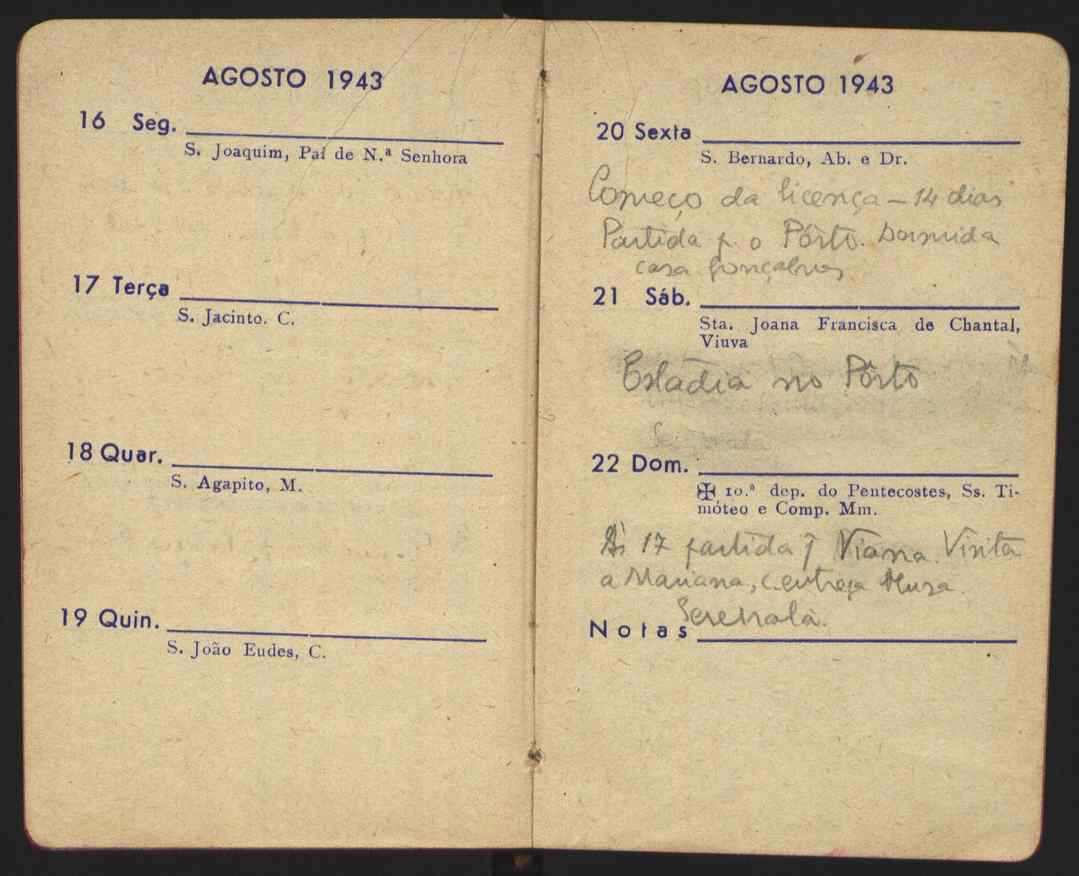 AGOSTO 1943
16 Seg.
S. Joaquim, Pai de N.ª Senhora
17 Terça
S. Jacinto. C.
18 Quar.
S. Agapito, M.
19 Quin.
S. João Eudes, C.
AGOSTO 1943
20 Sexta
S. Bernardo, Ab. e Dr.
Começo da licença – 14 dias
Partida p. o Pôrto. Dormida
casa Gonçalves
21 Sáb.
Sta. Joana Francisca de Chantal,
Viuva
Estadia no Pôrto
22 Dom.
✠ 10.ª dep. do Pentecostes, Ss. Ti-
móteo e Comp. Mm.
Às 17 partida Viana. Visita
a Mariana, c. entrega
Serenata.
Notas